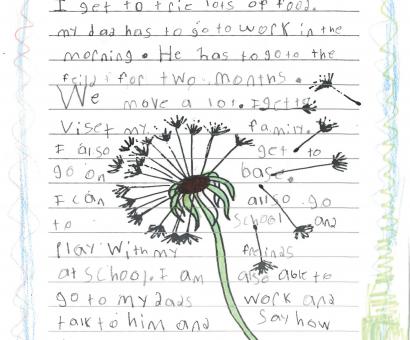 I get to trie lots of food.
my dad has to go to work in the
morning. He has to go to the
feild for two months.
We move a lot. I get to
Viset my family.
I also get to
go on base.
I can allso go
to school and
Play with my feinds
at school. I am also able to
go to my dads work and
talk to him and say how